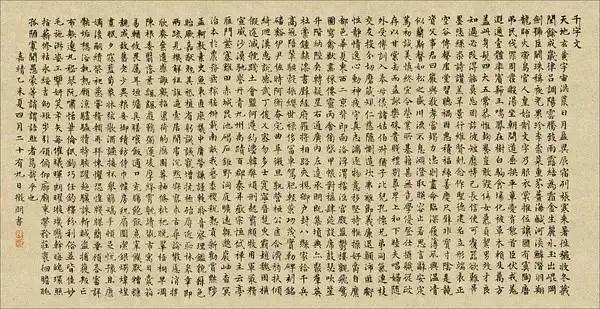 千字文
天地玄黃宇宙洪荒日月盈昃辰宿列張寒來暑往秋收冬藏
閏餘成歲律呂調陽雲騰致雨露結為霜金生麗水玉出崑岡
劍號巨闕珠稱夜光果珍李柰菜重芥薑海鹹河淡鱗潛羽翔
龍師火帝鳥官人皇始制文字乃服衣裳推位讓國有虞陶唐
弔民伐罪周發殷湯坐朝問道垂拱平章愛育黎首臣伏戎羌
遐邇壹體率賓歸王鳴鳳在樹白駒食場化被草木賴及萬方
蓋此身髮四大五常恭惟鞠養豈敢毀傷女慕貞絜男效才良
知過必改得能莫忘罔談彼短靡恃己長信使可覆器欲難量
墨悲絲染詩讚羔羊景行維賢克念作聖德建名立形端表正
空谷傳聲虛堂習聽禍因惡積福緣善慶尺璧非寶寸陰是競
資父事君曰嚴與敬孝當竭力忠則盡命臨深履薄夙興溫凊
似蘭斯馨如松之盛川流不息淵澄取映容止若思言辭安定
篤初誠美慎終宜令榮業所基籍甚無竟學優登仕攝職從政
存以甘棠去而益詠樂殊貴賤禮別尊卑上和下睦夫唱婦隨
外受傅訓入奉母儀諸姑伯叔猶子比兒孔懷兄弟同氣連枝
交友投分切磨箴規仁慈隱惻造次弗離節義廉退顛沛匪虧
性靜情逸心動神疲守真志滿逐物意移堅持雅操好爵自縻
都邑華夏東西二京背邙面洛浮渭據涇宮殿盤鬱樓觀飛驚
圖寫禽獸畫綵仙靈丙舍傍啟甲帳對楹肆筵設席鼓瑟吹笙
升階納陛弁轉疑星右通廣內左達承明既集墳典亦聚群英
杜稾鍾隸漆書壁經府羅將相路俠槐卿戶封八縣家給千兵
高冠陪輦驅轂振纓世祿侈富車駕肥輕策功茂實勒碑刻銘
磻溪伊尹佐時阿衡奄宅曲阜微旦孰營桓公匡合濟弱扶傾
綺迴漢惠說感武丁俊乂密勿多士寔寧晉楚更霸趙魏困橫
假途滅虢踐土會盟何遵約法韓弊煩刑起翦頗牧用軍最精
宣威沙漠馳譽丹青九州禹跡百郡秦并嶽宗恒岱禪主云亭
雁門紫塞雞田赤城昆池碣石鉅野洞庭曠遠綿邈巖岫杳冥
治本於農務茲稼穡俶載南畝我藝黍稷稅熟貢新勸賞黜陟
孟軻敦素史魚秉直庶幾中庸勞謙謹敕聆音察理鑑貌辨色
貽厥嘉猷勉其祗植省躬譏誡寵增抗極殆辱近恥林皋幸即
兩疏見機解組誰逼索居閒處沉默寂寥求古尋論散慮逍遙
欣奏累遣慼謝歡招渠荷的歷園莽抽條枇杷晚翠梧桐早凋
陳根委翳落葉飄颻遊鵾獨運凌摩絳霄耽讀翫市寓目囊箱
易輶攸畏屬耳垣牆具膳餐飯適口充腸飽飫烹宰飢厭糟糠
親戚故舊老少異糧妾御績紡侍巾帷房紈扇圓潔銀燭煒煌
晝眠夕寐藍筍象床弦歌酒讌接杯舉觴矯手頓足悅豫且康
嫡後嗣續祭祀蒸嘗稽顙再拜悚懼恐惶牋牒簡要顧答審詳
骸垢想浴執熱願涼驢騾犢特駭躍超驤誅斬賊盜捕獲叛亡
布射遼丸嵇琴阮嘯恬筆倫紙鈞巧任釣釋紛利俗並皆佳妙
毛施淑姿工顰妍笑年矢每催曦暉朗曜璇璣懸斡晦魄環照
指薪修祜永綏吉劭矩步引領俯仰廊廟束帶矜莊徘徊瞻眺
孤陋寡聞愚蒙等誚謂語助者焉哉乎也
嘉靖乙未夏四月二十有九日徵明書